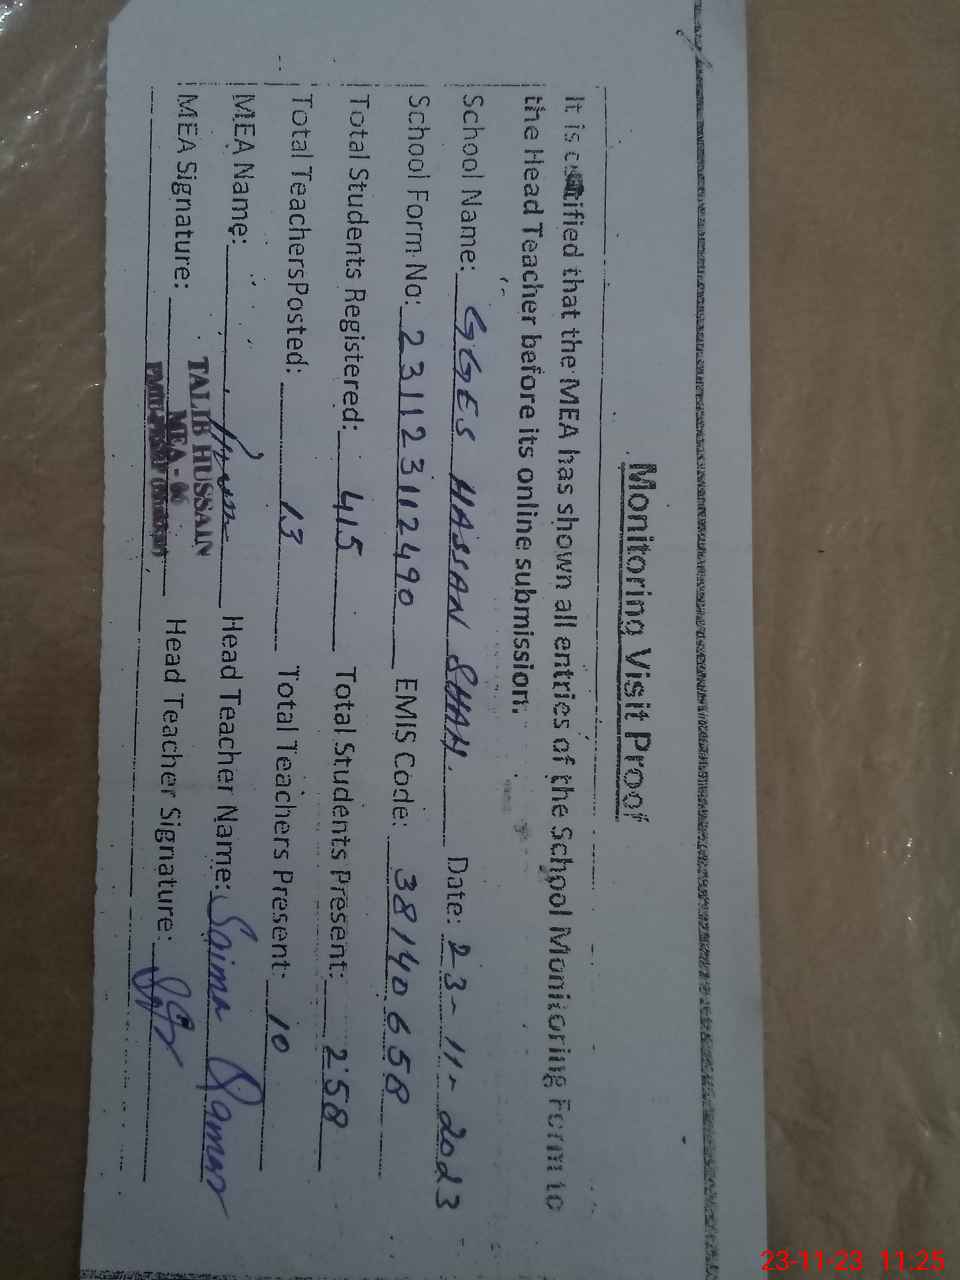 Monitoring Visit Proof
It is certified that the MEA has shown all entries of the School Monitoring Form to
the Head Teacher before its online submission.
School Name: GGES HASSAN SHAH. Date: 23-11-2023
School Form No: 231123112490 EMIS Code: 38140658
Total Students Registered: 415 Total Students Present: 258
Total Teachers Posted: 13 Total Teachers Present: 10
MEA Name: Head Teacher Name: Saima Qamar
TALIB HUSSAIN
MEA Signature: Head Teacher Signature:
MEA - 06
23-11-23 11:25